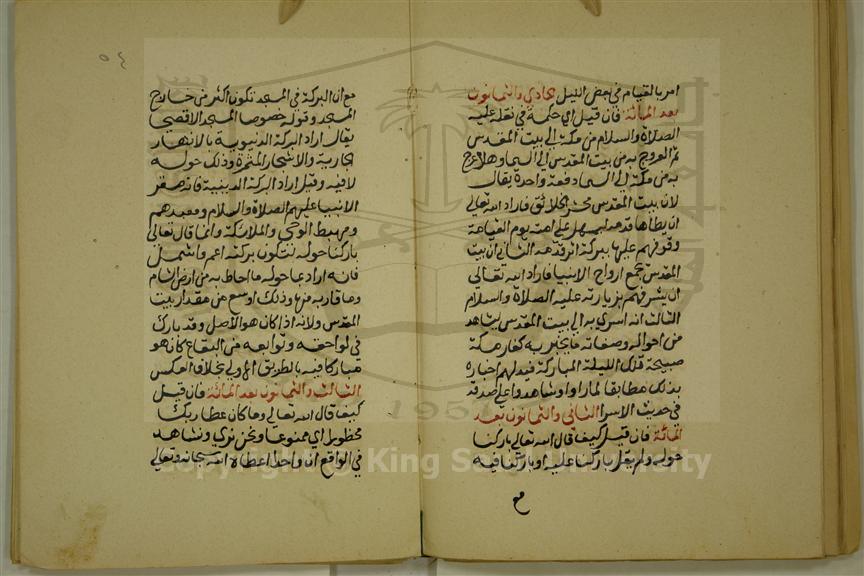 امر بالقيام في بعض الليل الحادي والثمانون
بعد المائة فان قيل اي حكمة في نقله عليه
الصلاة والسلام من مكة الى بيت المقدس
ثم العروج به من بيت المقدس الى السما وهلا عرج
به من مكة الى السما دفعة واحدة يقال
لان بيت المقدس محشر الخلائق فاراد الله تعالى
ان يطاها قدمه ليسهل على امته يوم القيامة
وقوفهم عليها ببركة اثر قدمه الثاني ان بيت
المقدس مجمع ارواح الانبيا فاراد الله تعالى
ان يشرفهم بزيارته عليه الصلاة والسلام
الثالث انه اسري به الى بيت المقدس ليشاهد
من احواله وصفاته ما يخبر به كفار مكة
صبيحة تلك الليلة المباركة فيدلهم اخباره
بذلك مطابقا لما راوا وشاهدوا على صدقه
في حديث الاسرا الثاني والثمانون بعد
المائة فان قيل كيف قال الله تعالى باركنا
حوله ولم يقل باركنا عليه او باركنا فيه
مع
٥٤
مع ان البركة في المسجد تكون اكثر من خارج
المسجد وقوله خصوصا المسجد الاقصى
يقال اراد البركة الدنيوية بالانهار
الجارية والاشجار المثمرة وذلك حوله
لا فيه وقيل اراد البركة الدينية فانه مقر
الانبيا عليهم الصلاة والسلام ومعبدهم
ومهبط الوحي والملائكة وانما قال تعالى
باركنا حوله لتكون بركته اعم واشمل
فانه اراد بما حوله ما احاط به من ارض الشام
وما قاربه منها وذلك اوسع من مقدار بيت
المقدس ولانه اذا كان هو الاصل وقد بارك
في لواحقه وتوابعه من البقاع كان هو
مباركا فيه بالطريق الاولى بخلاف العكس
الثالث والثمانون بعد المائة فان قيل
كيف قال الله تعالى وما كان عطا ربك
محظورا اي ممنوعا ونحن نرى ونشاهد
في الواقع ان واحدا اعطاه الله سبحانه وتعالى
1957
Copyright © King Saud University